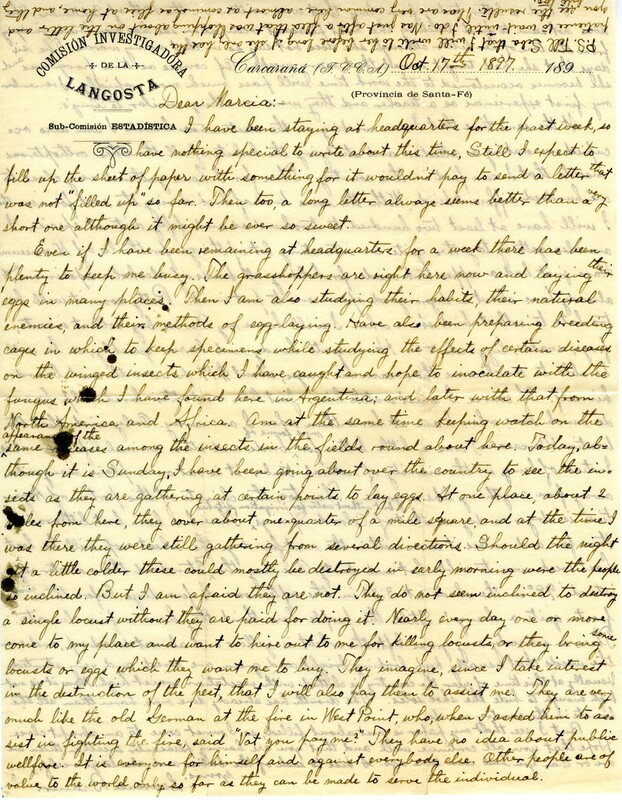 P.S. Tell Lida that I will write to her before long if she only has the
patience to wait until I do.
COMISIÓN INVESTIGADORA
DE LA
LANGOSTA
Sub-Comisión ESTADÍSTICA
Carcarañá (F. C. C. A.) Oct 17th 1897. 189
(Provincia de Santa-Fé)
Dear Marcia:-
I have been staying at headquarters for the past week, so
have nothing special to write about this time, Still I expect to
fill up the sheet of paper with something for it wouldn't pay to send a letter that
was not "filled up" so far. Then too, a long letter always seems better than a very
short one although it might be ever so sweet.
Even if I have been remaining at headquarters for a week there has been
plenty to keep me busy. The grasshoppers are right here now and laying their
eggs in many places. Then I am also studying their habits, their natural
enemies, and their methods of egg-laying. Have also been preparing breeding
cages in which to keep specimens while studying the effects of certain diseases
on the winged insects which I have caught and hope to inoculate with the
fungus which I have found here in Argentina; and later with that from
North America and Africa. Am at the same time keeping watch on the
appearance of the
same diseases among the insects in the fields round about here. Today, al-
though it is Sunday, I have been going about over the country to see the in-
sects as they are gathering at certain points to lay eggs. At one place about 2
miles from here, they cover about one-quarter of a mile square and at the time I
was there they were still gathering from several directions. Should the night
get a little colder these could mostly be destroyed in early morning were the people
so inclined. But I am afraid they are not. They do not seem inclined to destroy
a single locust without they are paid for doing it. Nearly every day one or more
come to my place and want to hire out to me for killing locusts, or they bring some
locusts or eggs which they want me to buy. They imagine, since I take interest
in the distruction of the pest, that I will also pay them to assist me. They are very
much like the old German at the fire in West Point, who, when I asked him to as-
sist in fighting the fire, said "Vat you pay me?" They have no idea about public
wellfare. It is everyone for himself and against everybody else. Other people are of
value to the world only so far as they can be made to serve the individual.